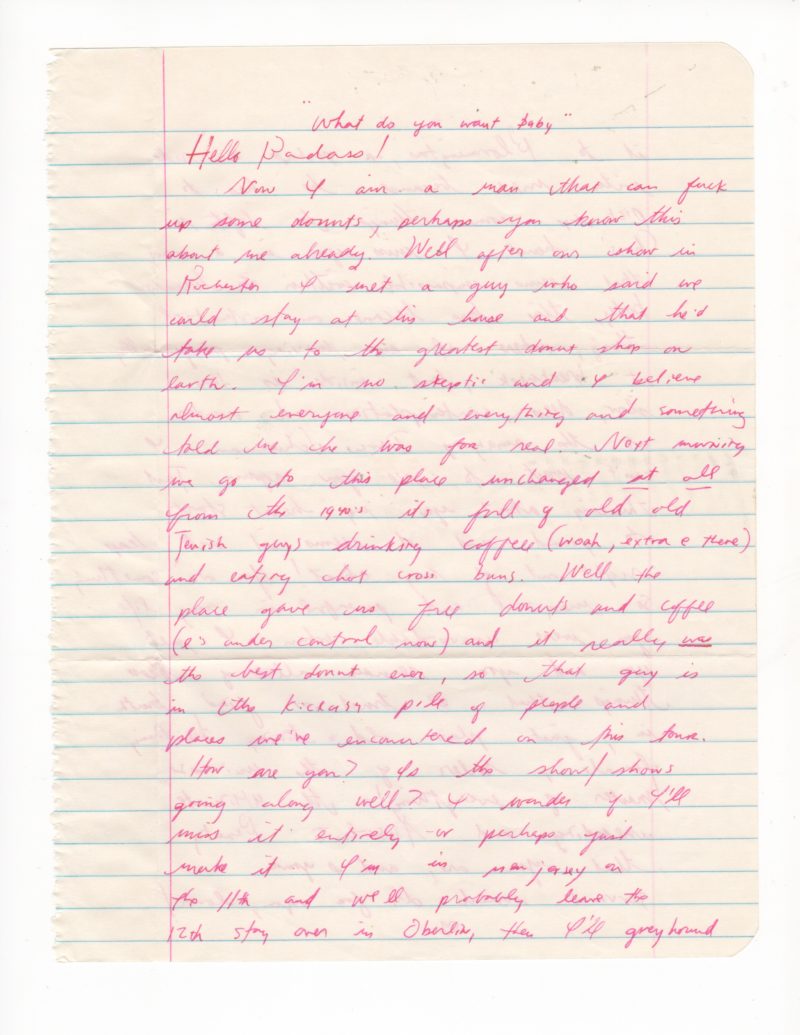 "What do you want Baby"
Hello Badass!
Now I am a man that can fuck
up some donuts, perhaps you know this
about me already. Well after our show in
Rochester I met a guy who said we
could stay at his house and that he'd
take us to the greatest donut shop on
earth. I'm no skeptic and I believe
almost everyone and everything and something
told me he was for real. Next morning
we go to this place unchanged at all
from the 1940's it's full of old old
Jewish guys drinking coffeee (woah, extra e there)
and eating hot cross buns. Well the
place gave us free donuts and coffee
(e's under control now) and it really was
the best donut ever, so that guy is
in the kickass pile of people and
places we've encountered on this tour.
How are you? Is the show/shows
going along well? I wonder if I'll
miss it entirely or perhaps just
make it I'm in new jersey on
the 11th and we'll probably leave the
12th stay over in Oberlin, then I'll greyhound